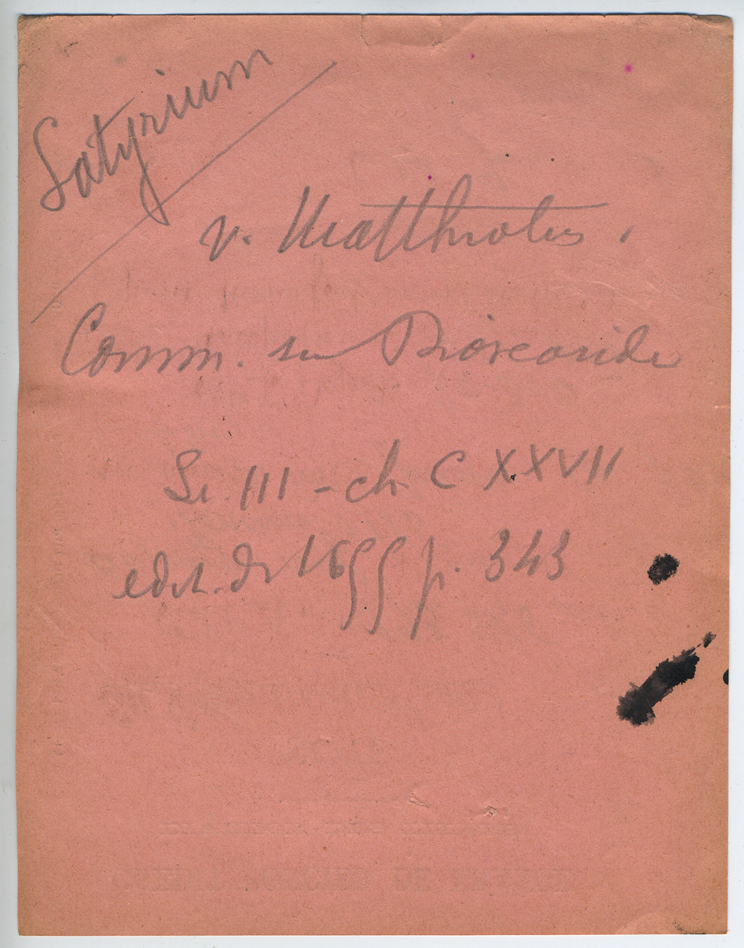 Satyrium
v. Matthiolus.
Comm. su Dioscoride
Li III - ch. CXXVII
edit. de 1655 p. 343